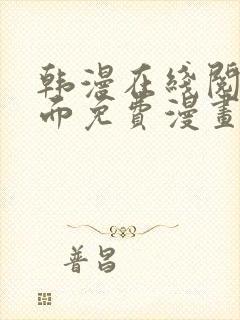 韩漫在线阅
而免费漫畫
普昌